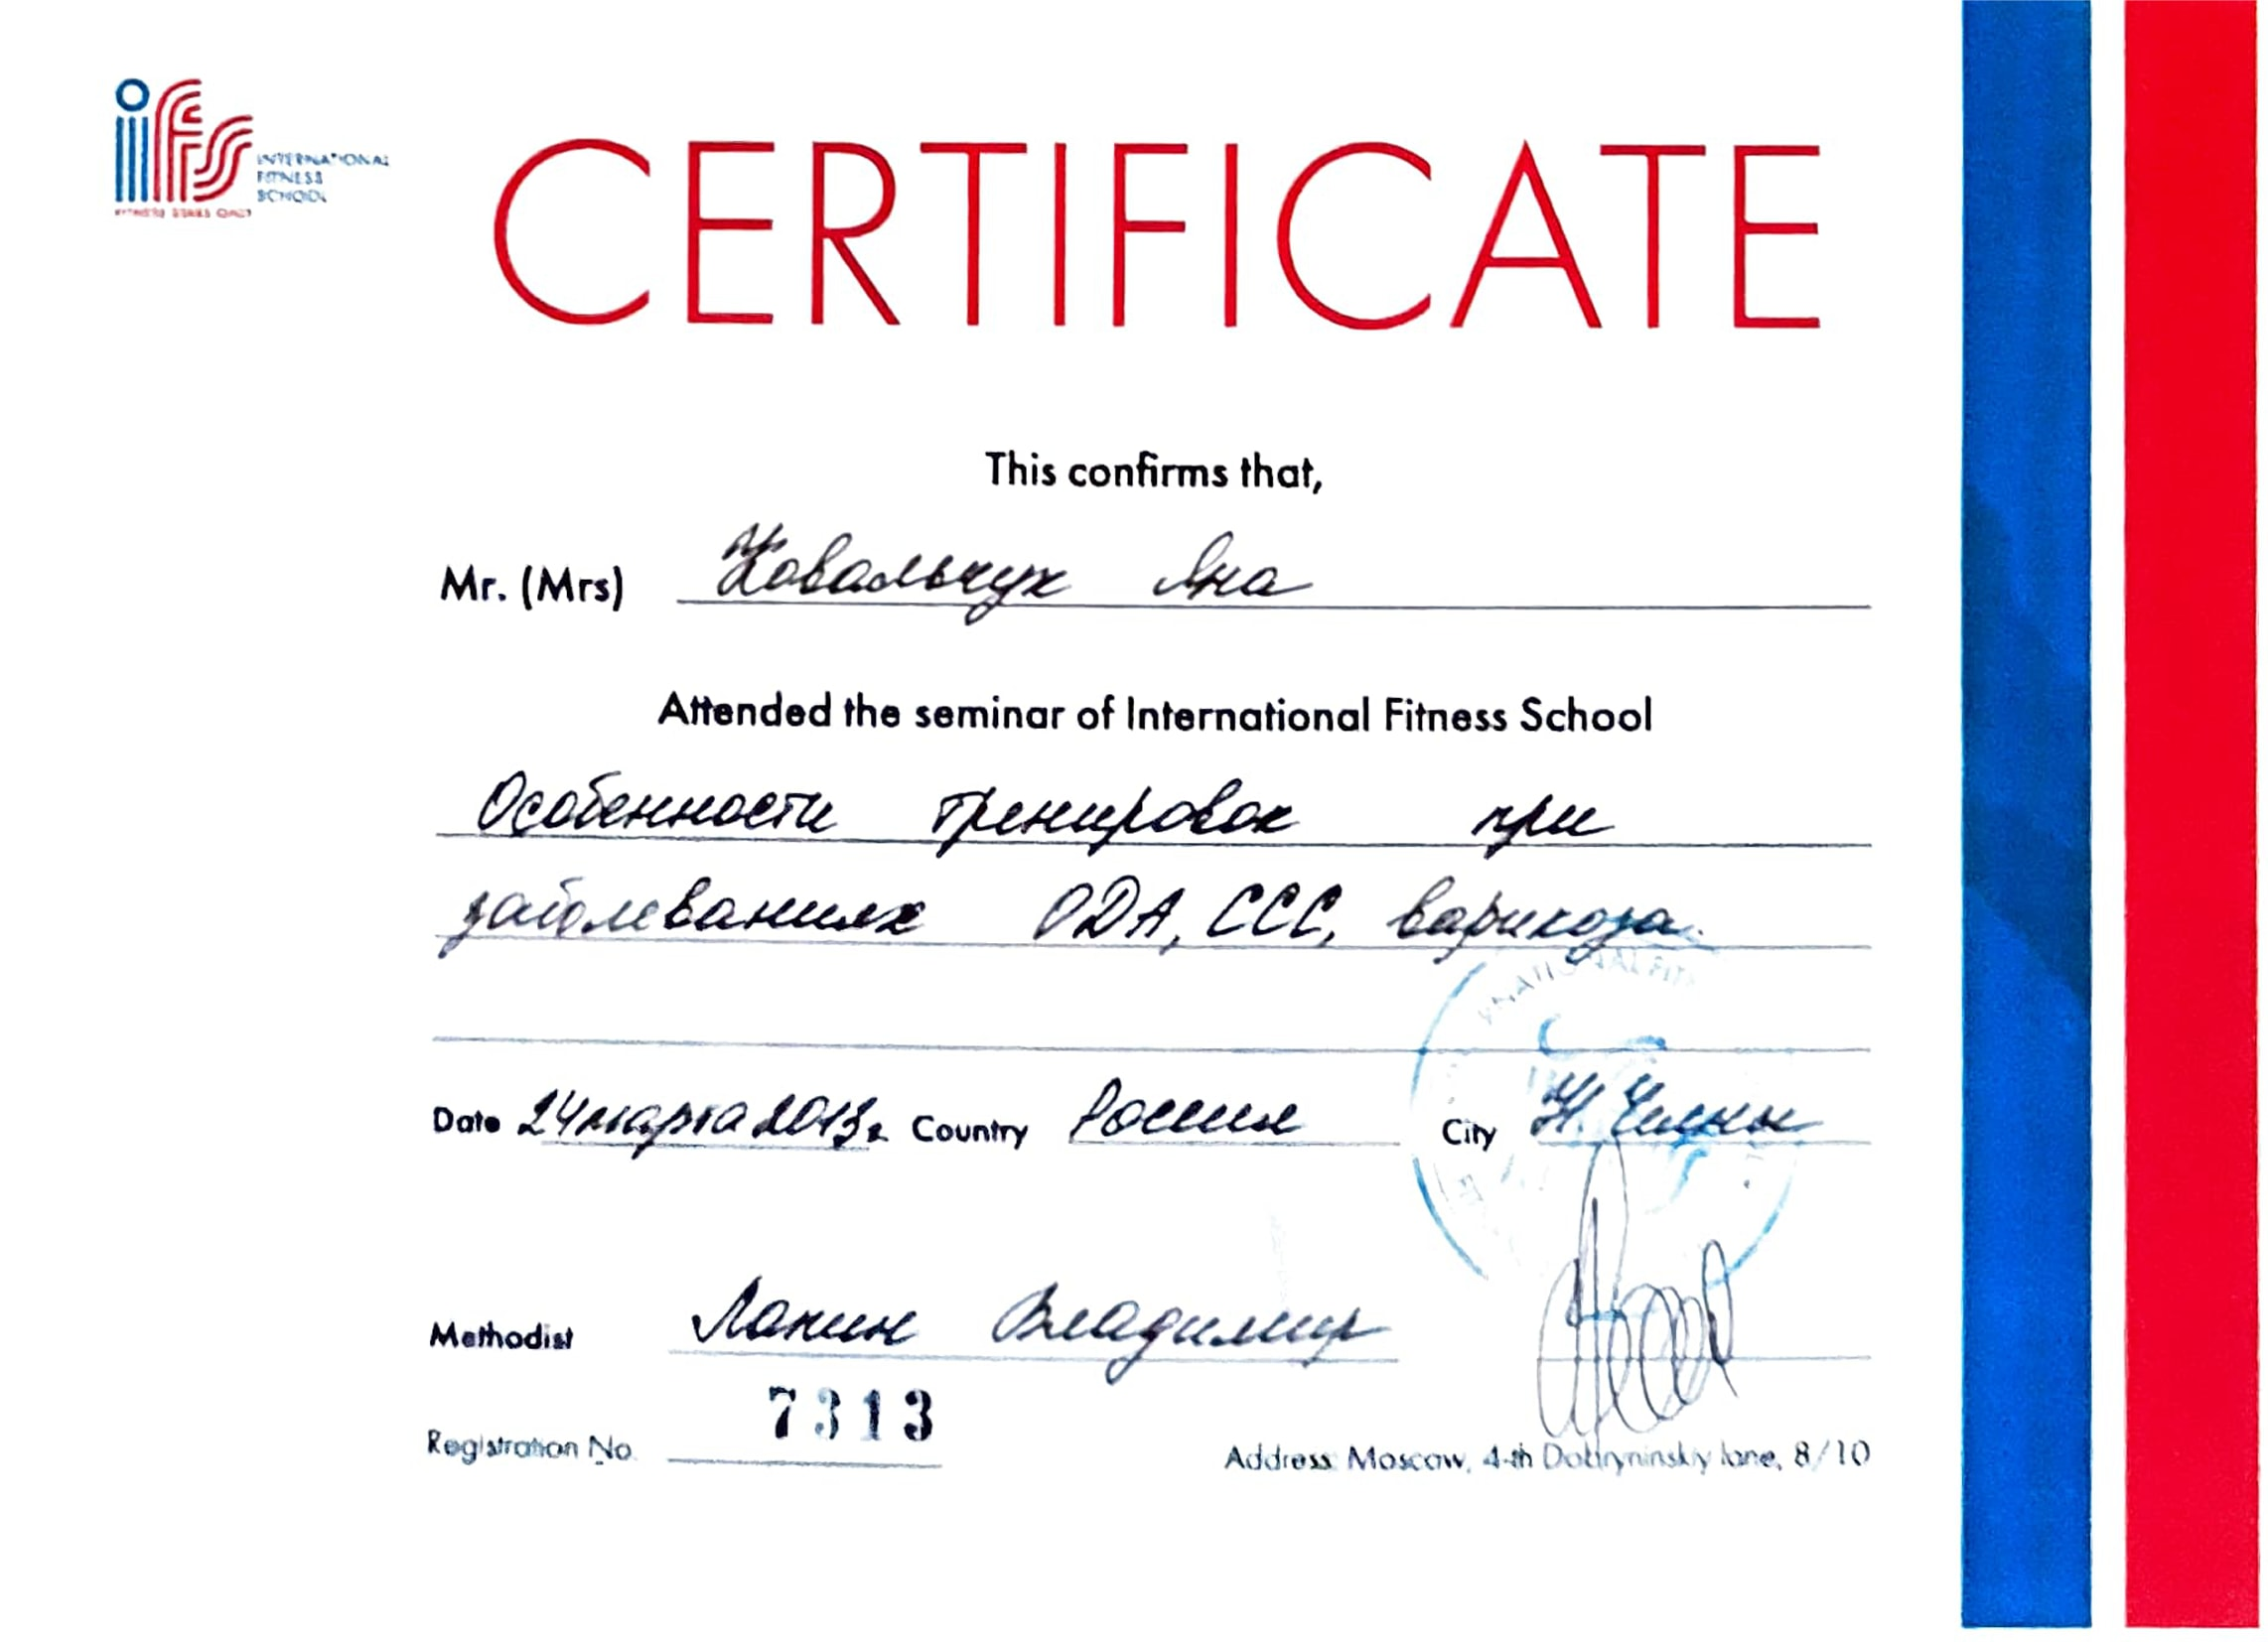 ifs
INTERNATIONAL
FITNESS
SCHOOL
CERTIFICATE
This confirms that,
Mr. (Mrs) Ковальчук Яна
Attended the seminar of International Fitness School
Особенности тренировок при
заболеваниях ОДА, ССС, варикоза.
Date 24 марта 2013г. Country Россия City Н. Челны
Methodist Владимир
Registration No. 7313
Address: Moscow, 4-th Dobryninskiy lane, 8/10